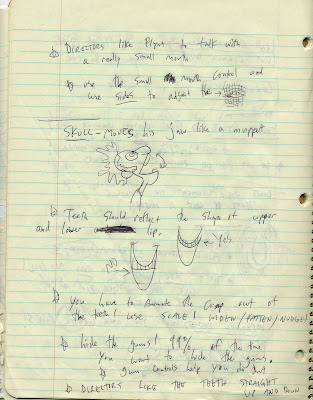 DIRECTORS like Flynn to talk with
a really small mouth
use the small mouth control and
use sides to adjust the →
SKULL - MOVES his jaw like a muppet
Teeth should reflect the shape of upper
and lower lip.
NO
Yes
you have to animate the crap out of
the teeth! USE SCALE! WIDEN/FATTEN/NUDGE!
hide the gums! 99% of the time
you want to hide the gums.
gum controls help you do that
DIRECTORS LIKE THE TEETH STRAIGHT
UP AND DOWN